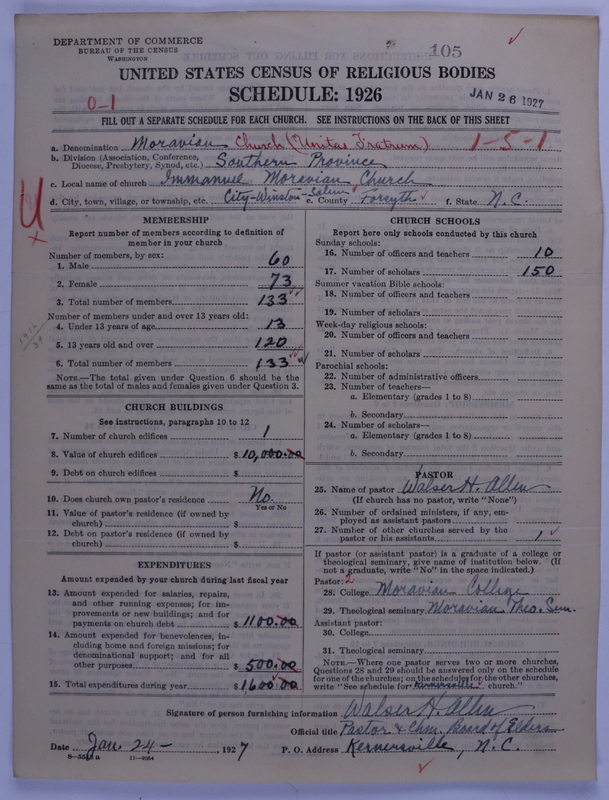 DEPARTMENT OF COMMERCE
BUREAU OF THE CENSUS
WASHINGTON
105
UNITED STATES CENSUS OF RELIGIOUS BODIES
SCHEDULE: 1926
JAN 26 1927
0-1
FILL OUT A SEPARATE SCHEDULE FOR EACH CHURCH. SEE INSTRUCTIONS ON THE BACK OF THIS SHEET
a. Denomination Moravian Church (Unitas Fratrum) 1-5-1
b. Division (Association, Conference, Diocese, Presbytery, Synod, etc.) Southern Province
c. Local name of church Immanuel Moravian Church
d. City, town, village, or township, etc. City-Winston-Salem e. County Forsyth f. State N.C.
MEMBERSHIP
Report number of members according to definition of
member in your church
Number of members, by sex:
1. Male 60
2. Female 73
3. Total number of members 133
Number of members under and over 13 years old:
4. Under 13 years of age 13
5. 13 years old and over 120
6. Total number of members 133
NOTE.—The total given under Question 6 should be the
same as the total of males and females given under Question 3.
CHURCH BUILDINGS
See instructions, paragraphs 10 to 12
7. Number of church edifices 1
8. Value of church edifices $10,000.00
9. Debt on church edifices $
10. Does church own pastor's residence No.
Yes or No
11. Value of pastor's residence (if owned by
church) $
12. Debt on pastor's residence (if owned by
church) $
EXPENDITURES
Amount expended by your church during last fiscal year
13. Amount expended for salaries, repairs,
and other running expenses; for im-
provements or new buildings; and for
payments on church debt $1100.00
14. Amount expended for benevolences, in-
cluding home and foreign missions; for
denominational support; and for all
other purposes $500.00
15. Total expenditures during year $1600.00
CHURCH SCHOOLS
Report here only schools conducted by this church
Sunday schools:
16. Number of officers and teachers 10
17. Number of scholars 150
Summer vacation Bible schools:
18. Number of officers and teachers
19. Number of scholars
Week-day religious schools:
20. Number of officers and teachers
21. Number of scholars
Parochial schools:
22. Number of administrative officers
23. Number of teachers—
a. Elementary (grades 1 to 8)
b. Secondary
24. Number of scholars—
a. Elementary (grades 1 to 8)
b. Secondary
PASTOR
25. Name of pastor Walser H. Allen
(If church has no pastor, write "None")
26. Number of ordained ministers, if any, em-
ployed as assistant pastors
27. Number of other churches served by the
pastor or his assistants 1
If pastor (or assistant pastor) is a graduate of a college or
theological seminary, give name of institution below. (If
not a graduate, write "No" in the space indicated.)
Pastor: 2
28. College Moravian College
29. Theological seminary Moravian Theo. Sem.
Assistant pastor:
30. College
31. Theological seminary
NOTE.—Where one pastor serves two or more churches,
Questions 28 and 29 should be answered only on the schedule
for one of the churches; on the schedules for the other churches,
write "See schedule for Kernersville church."
Signature of person furnishing information Walser H. Allen
Official title Pastor & Chm. Board of Elders
Date Jan. 24- , 1927 P. O. Address Kernersville, N. C.